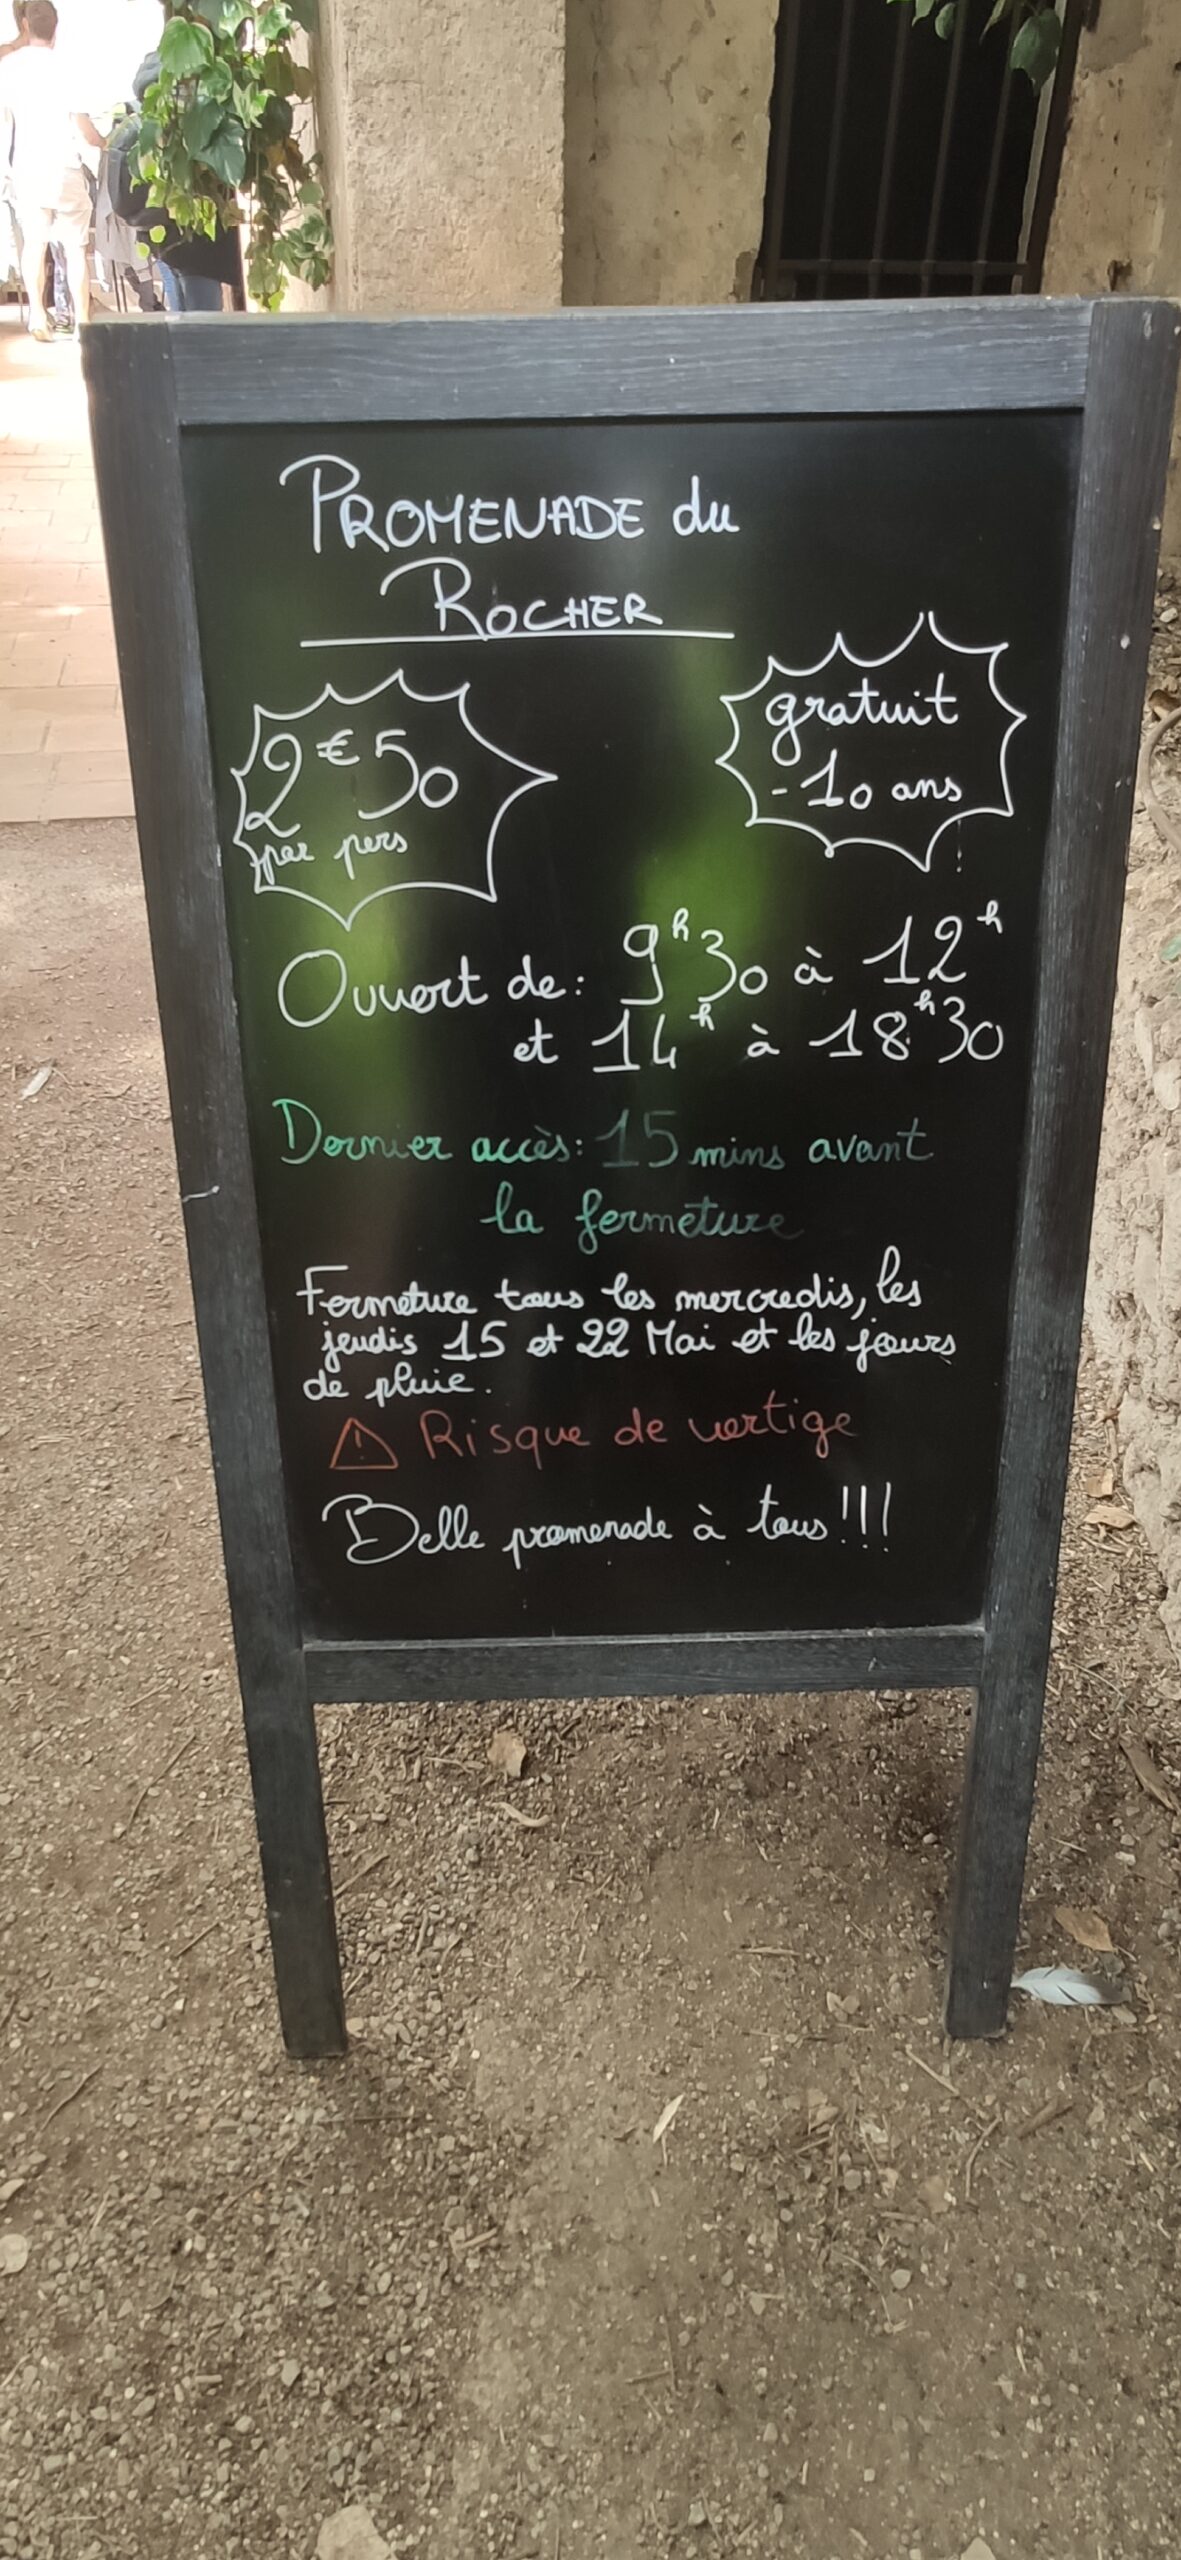 PROMENADE du
ROCHER
2€50
par pers
gratuit
-10 ans
Ouvert de: 9h30 à 12h
et 14h à 18h30
Dernier accès: 15 mins avant
la fermeture
Fermeture tous les mercredis, les
jeudis 15 et 22 Mai et les jours
de pluie.
⚠ Risque de vertige
Belle promenade à tous!!!